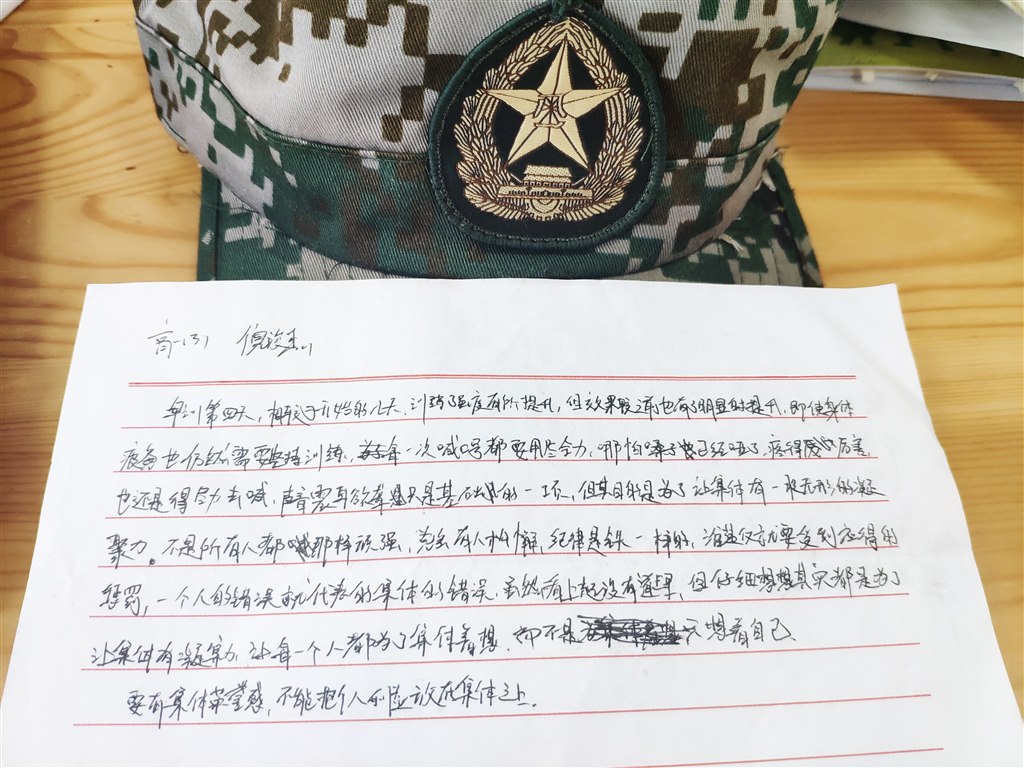 高一(3) 倪
军训第四天,相较于开始的几天,训练强度有所提升,但效果也有了明显的提升,即使身体
疲惫也仍然需要坚持训练,每一次喊口号都要用尽全力,哪怕嗓子已经哑了,疼得厉害,
也还是得尽力去喊,声音震耳欲聋只是基础的一项,但其目的是为了让集体有一股无形的凝
聚力。不是所有人都那样顽强,总会有人松懈,纪律是铁一样的,没做好就要受到应得的
惩罚,一个人的错误就代表的集体的错误,虽然看上起没有道理,但仔细想想其实都是为了
让集体有凝聚力,让每一个人都为了集体着想,而不是只想着自己.
要有集体荣誉感,不能把个人利益放在集体之上.